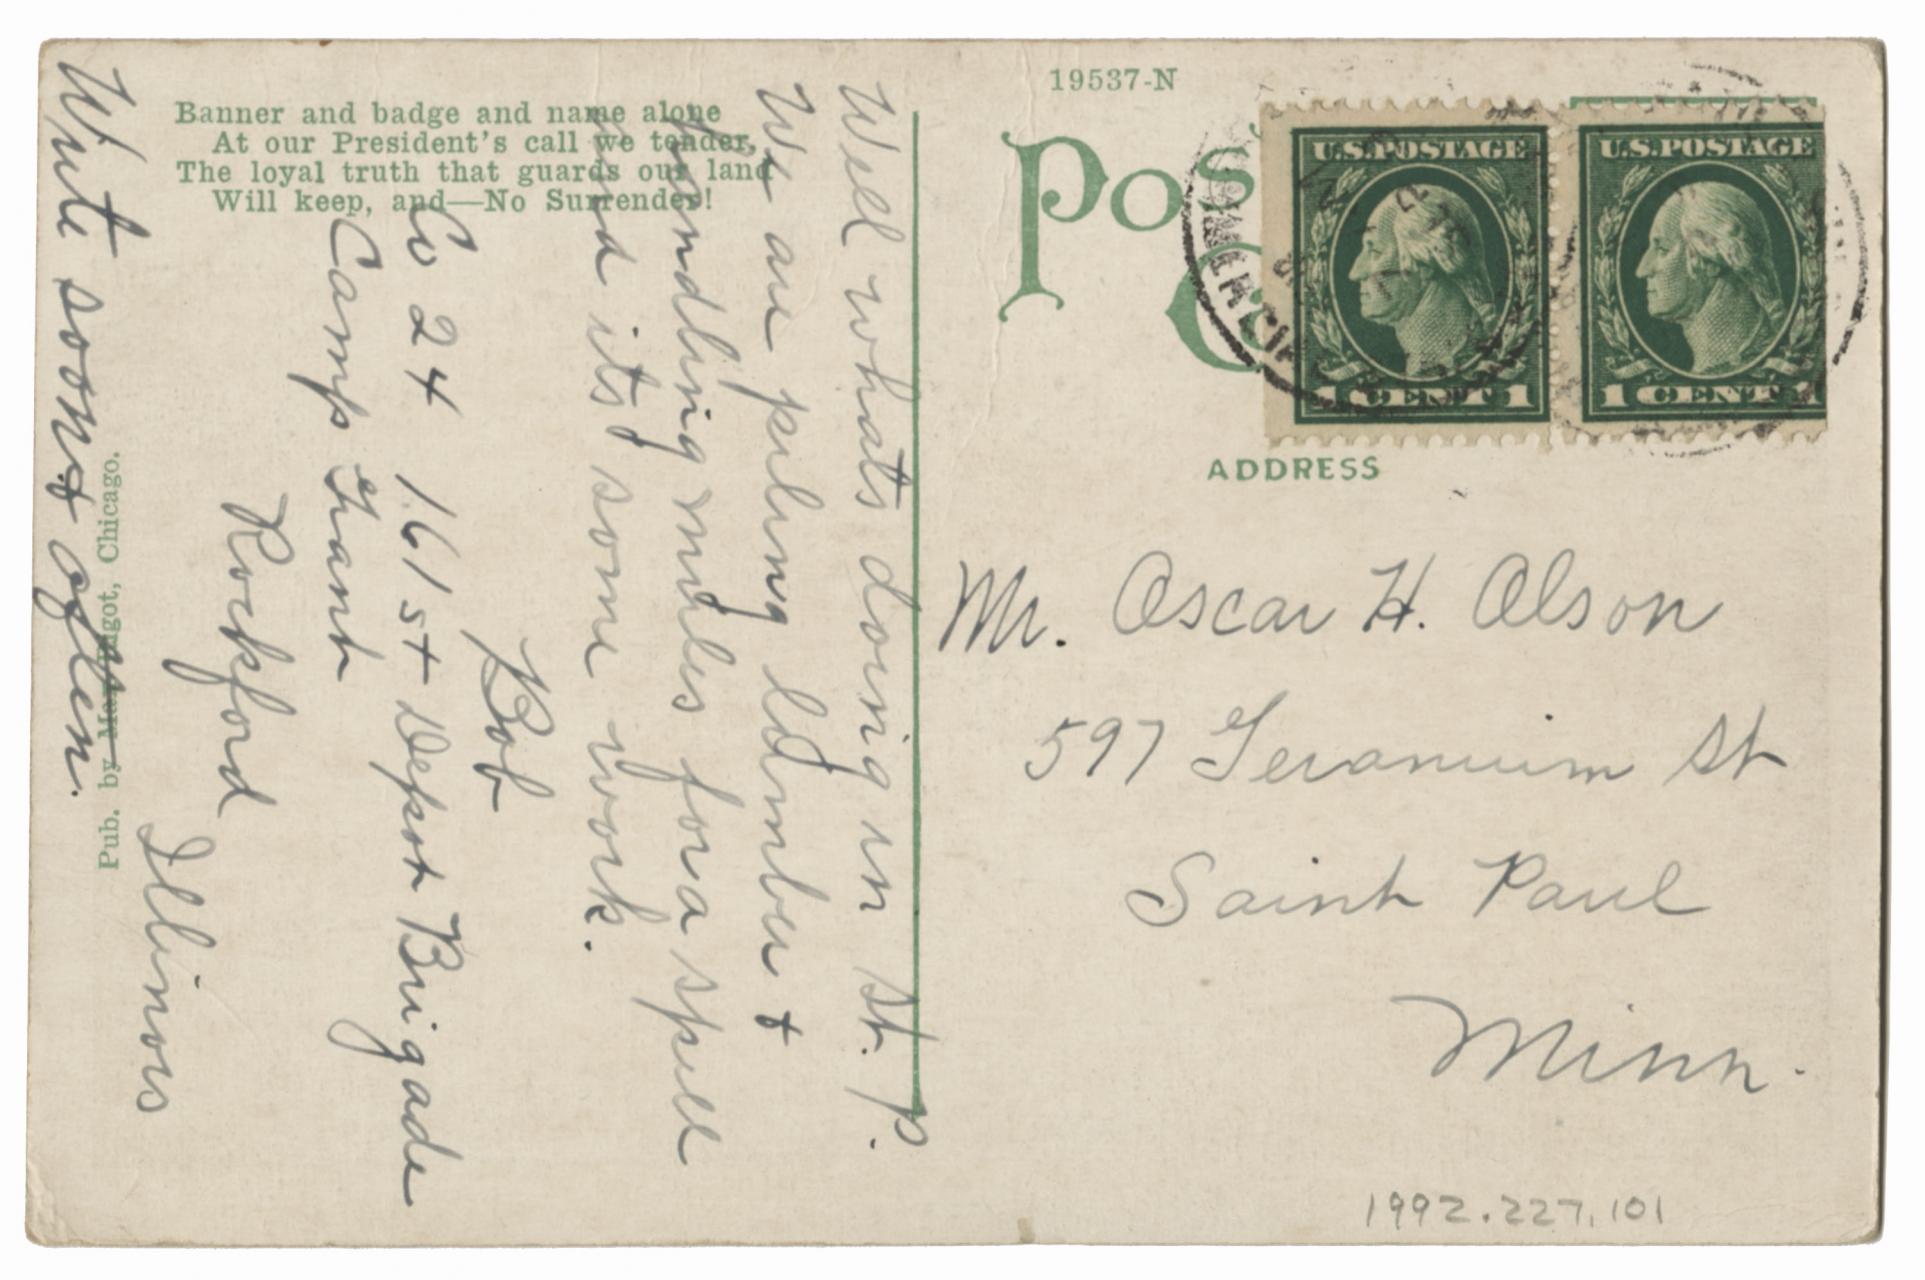 Banner and badge and name alone
At our President's call we tender,
The loyal truth that guards our land
Will keep, and—No Surrender!
Well whats doing in St. P.
We are piling lumber &
handling mules for a spell
and its some work.
Bob
Co 24 161st Depot Brigade
Camp Grant
Rockford
Illinois
Write soon & often.
Pub. by Max Rigot, Chicago.
19537-N
Pos
C
U.S.POSTAGE
1 CENT 1
U.S.POSTAGE
1 CENT 1
ADDRESS
Mr. Oscar H. Olson
597 Geranium St
Saint Paul
Minn.
1992.227.101